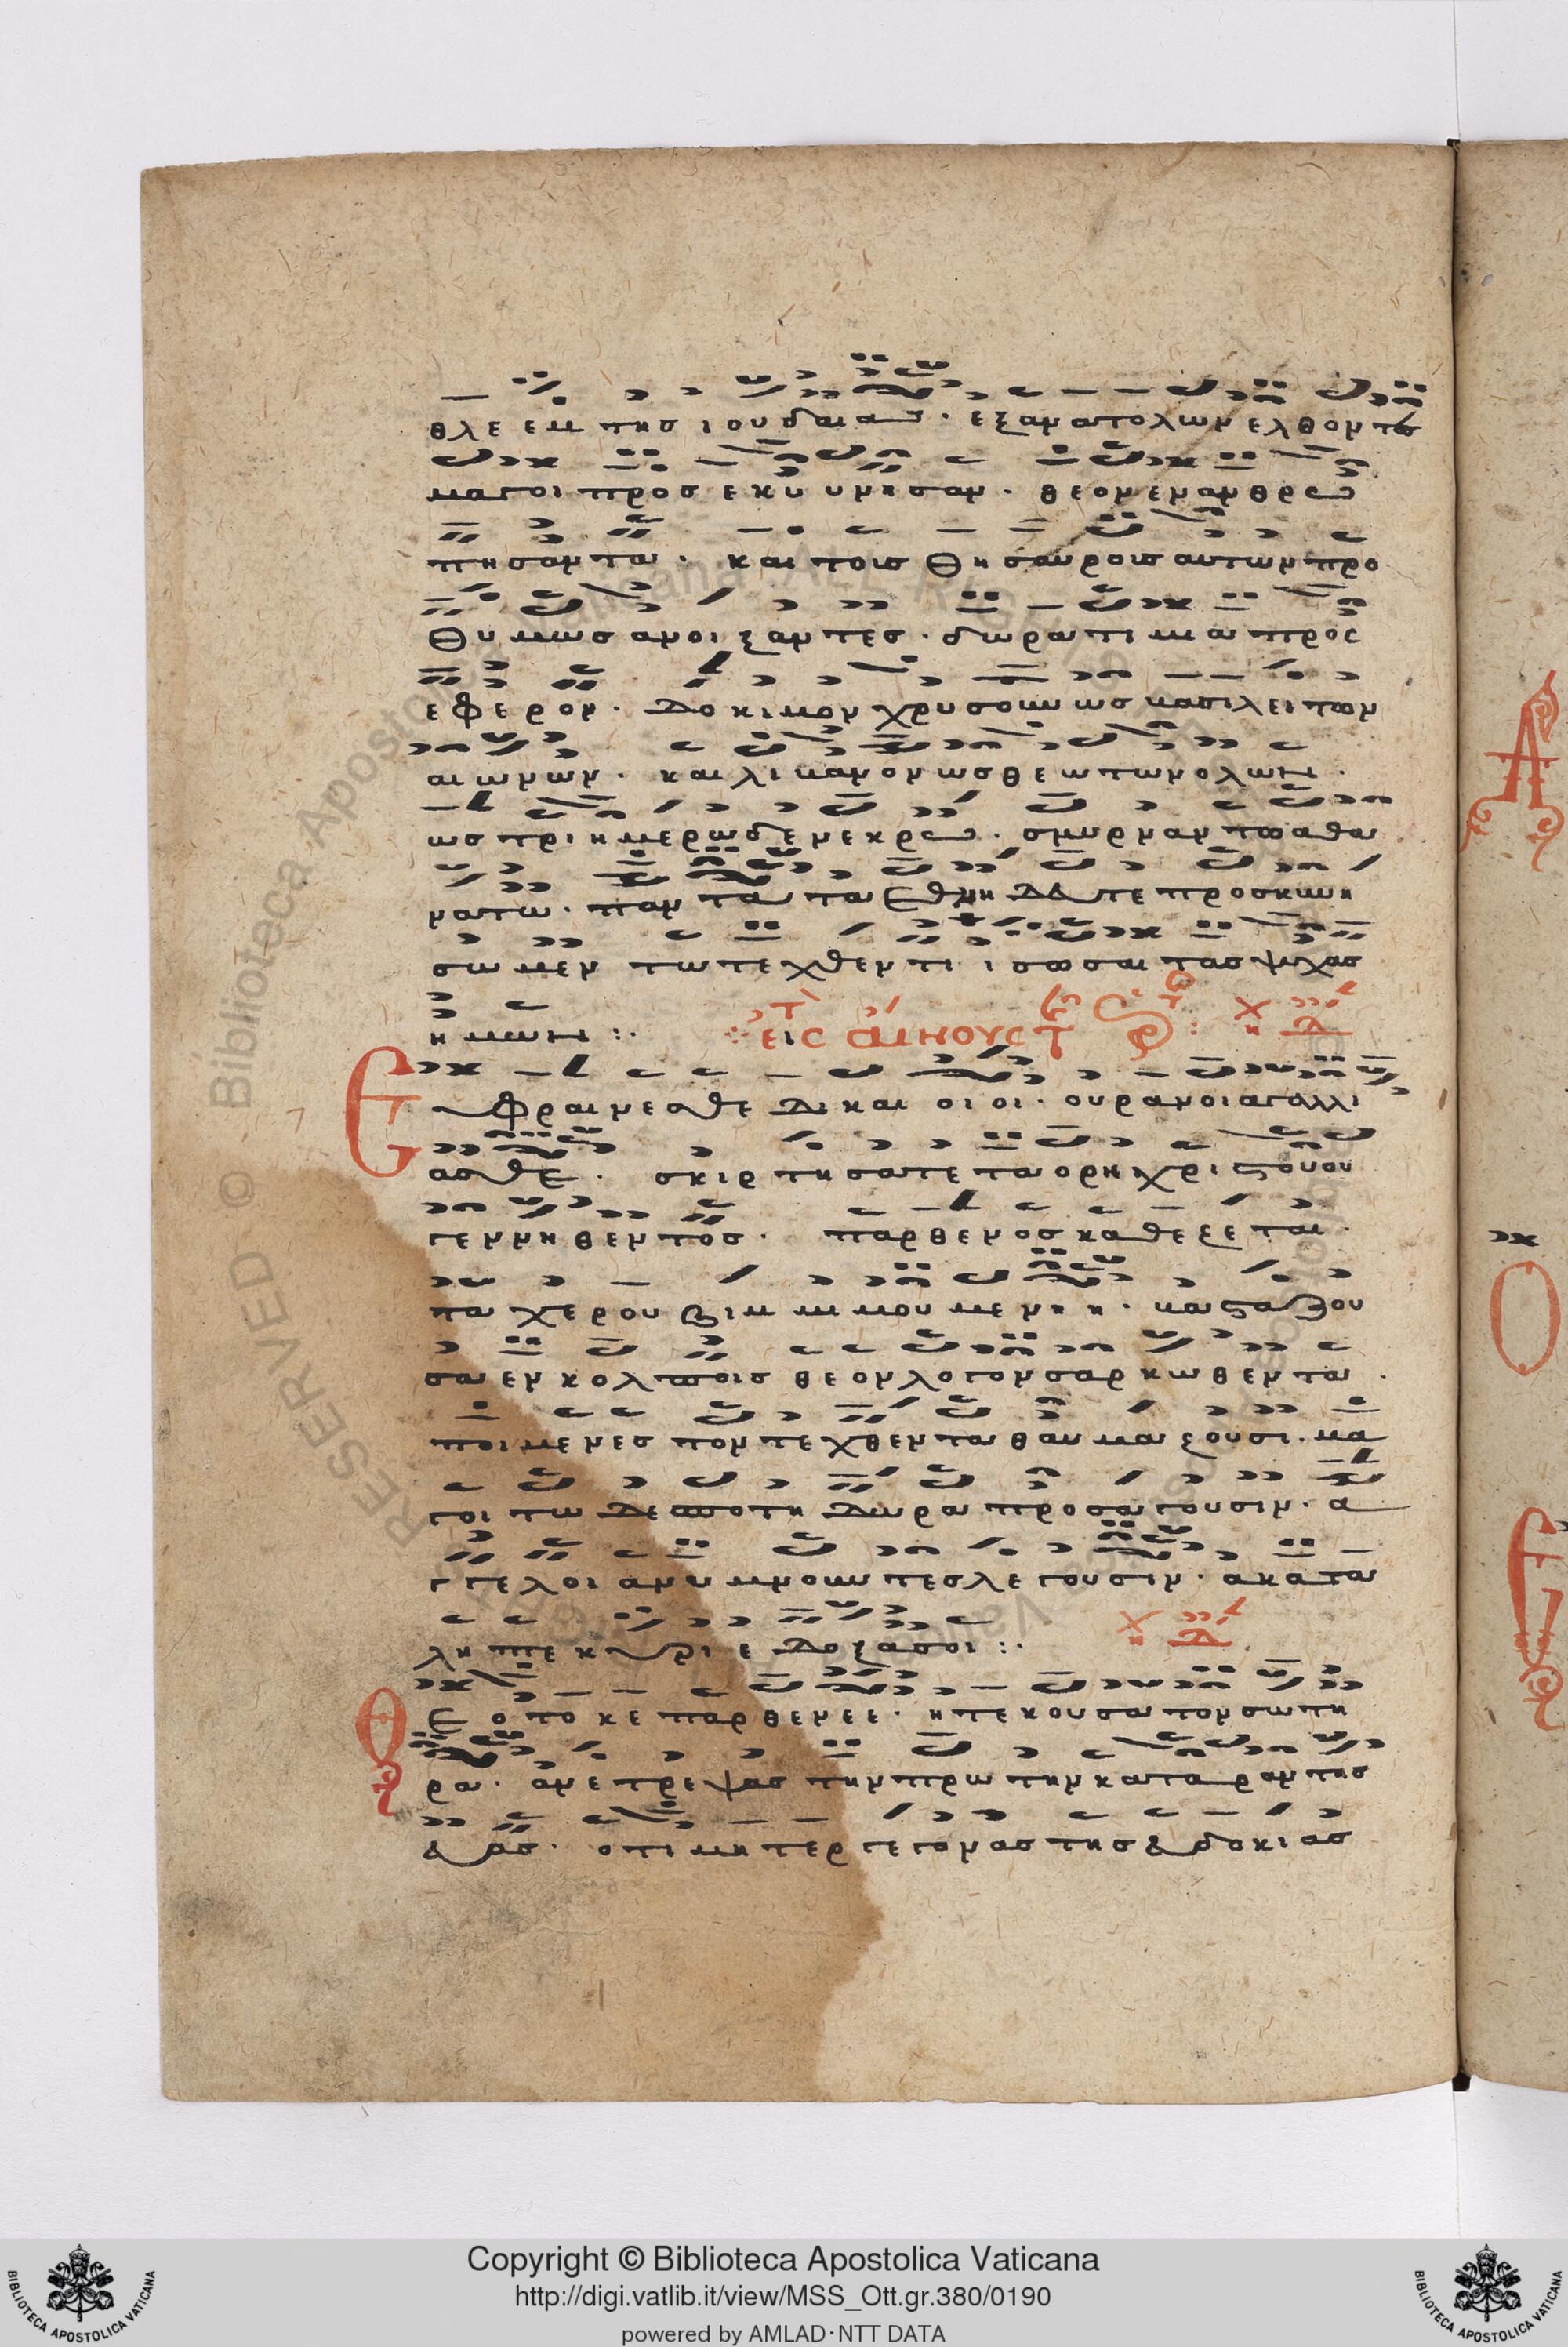 θλεεμ της ιουδαιας · εξ ανατολων ελθοντες
μαγοι προσεκυυνησαν · θεον ενανθρω
πησαντα · και τοις θησαυροις αυτων προ
θυμως ανοιξαντες · δωρα τιμια προσ
εφερον · δοκιμον χρυσον ως βασιλει των
αιωνων · και λιβανον ως θεω των ολων ·
ως τριημερω δε νεκρω · σμυρναν τω αθα
νατω · παντα τα εθνη δευτε προσκυνη
σωμεν τω τεχθεντι σωσαι τας ψυχας
ημων :·
εις αινους
ευφραινεσθε δικαιοιοι · ουρανοι αγαλλι
ασθε · σκιρτησατε τα ορη χριστουου
γεννηθεντος · παρθενος καθεζεται ·
τα χερουβιμ μιμουμενηη · βασταζου
σα εν κολποις θεον λογον σαρκωθεντα ·
ποιμενες τον τεχθεντα θαυμαζουσι · μα
γοι τω δεσποτη δωρα προσαγουσιν · α
γγελοι ανυμνουντες λεγουσιν · ακατα
ληπτε κυριε δοξα σοι :·
Θεοτοκε παρθενεε · η τεκουσα τον σωτη
ρα · ανετρεψας την πρωτην καταραν της
ευας · οτι μητερ γεγονας της ευδοκιας
Copyright © Biblioteca Apostolica Vaticana
http://digi.vatlib.it/view/MSS_Ott.gr.380/0190
powered by AMLAD·NTT DATA
BIBLIOTECA APOSTOLICA VATICANA
BIBLIOTECA APOSTOLICA VATICANA